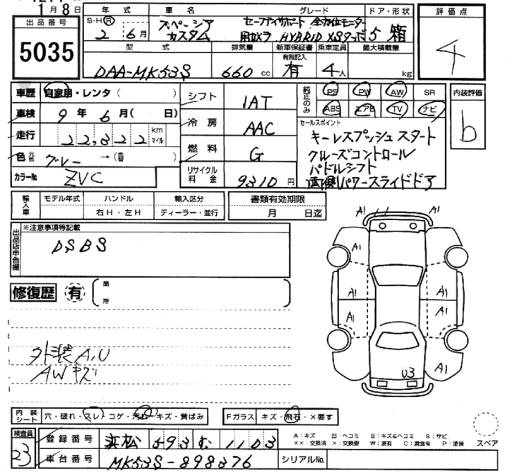 月8日
出品番号
5035
年式 車名 グレード ドア・形状
S・H・Ⓡ 2年6月 スペーシア カスタム セーフティサポート 全方位モニター 用カメラ HYBRID XSターボ 5 箱
評価点
4
型式 排気量 新車保証書 有無記入 乗車定員 最大積載量
DAA-MK53S 660cc 有 4人 kg
車歴 自家用・レンタ( )
車検 9年6月( 日)
走行 22,322 km マイル
色 グレー →( )
カラー№ ZVC
シフト IAT
冷房 AAC
燃料 G
リサイクル料金 9310円
純正のみ PS PW AW SR
ABS エアB TV ナビ
内装評価
b
セールスポイント
キーレスプッシュスタート
クルーズコントロール
パドルシフト
両側パワースライドドア
輸入車 モデル年式 ハンドル 輸入区分 書類有効期限
右H・左H ディーラー・並行 月 日迄
出品店申告欄 ※注意事項等記載
DSBS
修復歴 有 箇所
外装A,U
AWキズ
A1 A1
A1 A1
A1 A1
U3
内装シート 穴・破れ・スレ・コゲ・汚れ・キズ・黄ばみ Fガラス キズ・飛石・×要す
検査員
23
登録番号 浜松 593 む 1103
車台番号 MK53S-898376
シリアルNo.
A:キズ U:ヘコミ B:キズ&ヘコミ S:サビ
××:交換済 ×:交換要 W:波有 C:腐食有 P:塗装 スペア